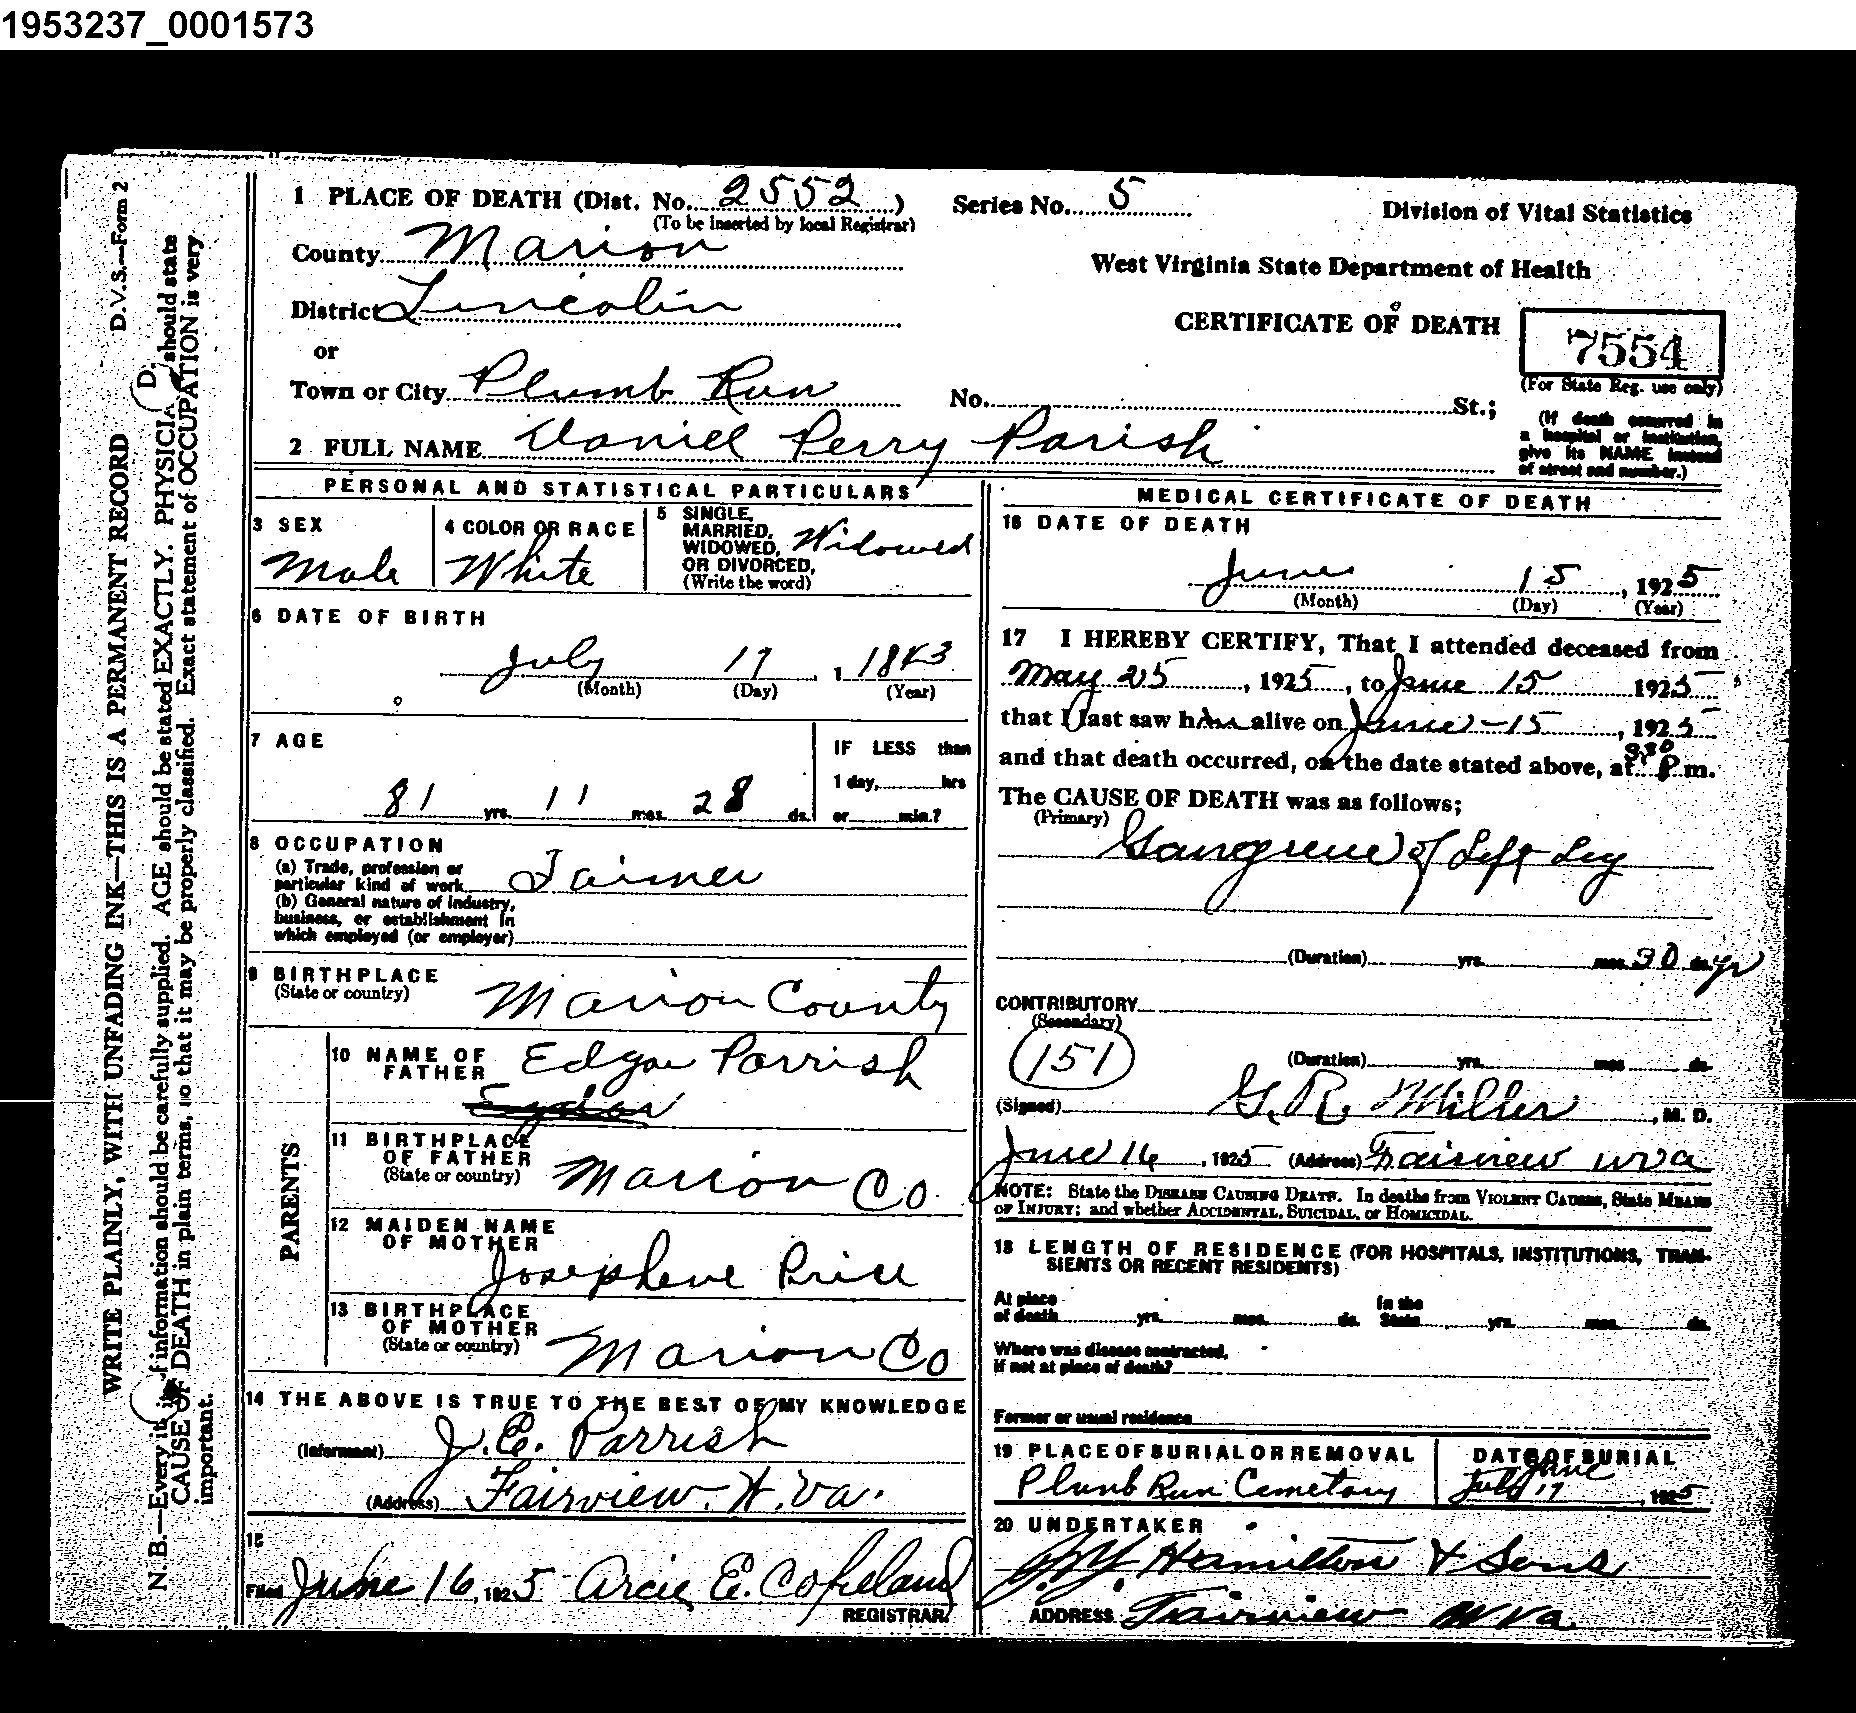 1953237_0001573
D.V.S.—Form 2
WRITE PLAINLY, WITH UNFADING INK—THIS IS A PERMANENT RECORD
N.B.—Every item of information should be carefully supplied. AGE should be stated EXACTLY. PHYSICIA should state
CAUSE OF DEATH in plain terms, so that it may be properly classified. Exact statement of OCCUPATION is very
important.
1 PLACE OF DEATH (Dist. No. 2552) Series No. 5
(To be inserted by local Registrar)
Division of Vital Statistics
County Marion
West Virginia State Department of Health
District Lincolin
CERTIFICATE OF DEATH
7554
(For State Reg. use only)
or
Town or City Plumb Run No. St.;
(If death occurred in
a hospital or institution,
give its NAME instead
of street and number.)
2 FULL NAME Daniel Perry Parish
PERSONAL AND STATISTICAL PARTICULARS
3 SEX
Male
4 COLOR OR RACE
White
5 SINGLE,
MARRIED,
WIDOWED,
OR DIVORCED,
(Write the word)
Widowed
6 DATE OF BIRTH
July 17, 1843
(Month) (Day) (Year)
7 AGE
81 yrs. 11 mos. 28 ds.
IF LESS than
1 day, hrs
or min.?
8 OCCUPATION
(a) Trade, profession or
particular kind of work Farmer
(b) General nature of industry,
business, or establishment in
which employed (or employer)
9 BIRTHPLACE
(State or country) Marion County
PARENTS
10 NAME OF
FATHER Edgar Parrish
11 BIRTHPLACE
OF FATHER
(State or country) Marion Co.
12 MAIDEN NAME
OF MOTHER
Josephene Price
13 BIRTHPLACE
OF MOTHER
(State or country) Marion Co
14 THE ABOVE IS TRUE TO THE BEST OF MY KNOWLEDGE
(Informant) J. E. Parrish
(Address) Fairview. W. Va.
15
Filed June 16, 1925 Arcie E. Copeland
REGISTRAR
MEDICAL CERTIFICATE OF DEATH
16 DATE OF DEATH
June 15, 1925
(Month) (Day) (Year)
17 I HEREBY CERTIFY, That I attended deceased from
May 25, 1925, to June 15 1925
that I last saw him alive on June - 15, 1925
and that death occurred, on the date stated above, at P m.
The CAUSE OF DEATH was as follows;
(Primary)
Gangrene of Left Leg
(Duration) yrs. mos. 30 ds.
CONTRIBUTORY
(Secondary)
151
(Duration) yrs. mos. ds.
(Signed) G. R. Miller, M. D.
June 16, 1925 (Address) Fairview W Va
NOTE: State the DISEASE CAUSING DEATH. In deaths from VIOLENT CAUSES, State MEANS
OF INJURY; and whether ACCIDENTAL, SUICIDAL, or HOMICIDAL.
18 LENGTH OF RESIDENCE (FOR HOSPITALS, INSTITUTIONS, TRAN-
SIENTS OR RECENT RESIDENTS)
At place In the
of death yrs. mos. ds. State yrs. mos. ds.
Where was disease contracted,
if not at place of death?
Former or usual residence
19 PLACE OF BURIAL OR REMOVAL
Plumb Run Cemetary
DATE OF BURIAL
June
July 17, 1925
20 UNDERTAKER
Hamilton & Sons
ADDRESS Fairview W Va.